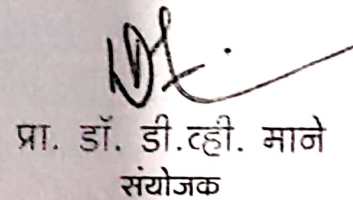 प्रा. डॉ. डी.व्ही. माने
संयोजक